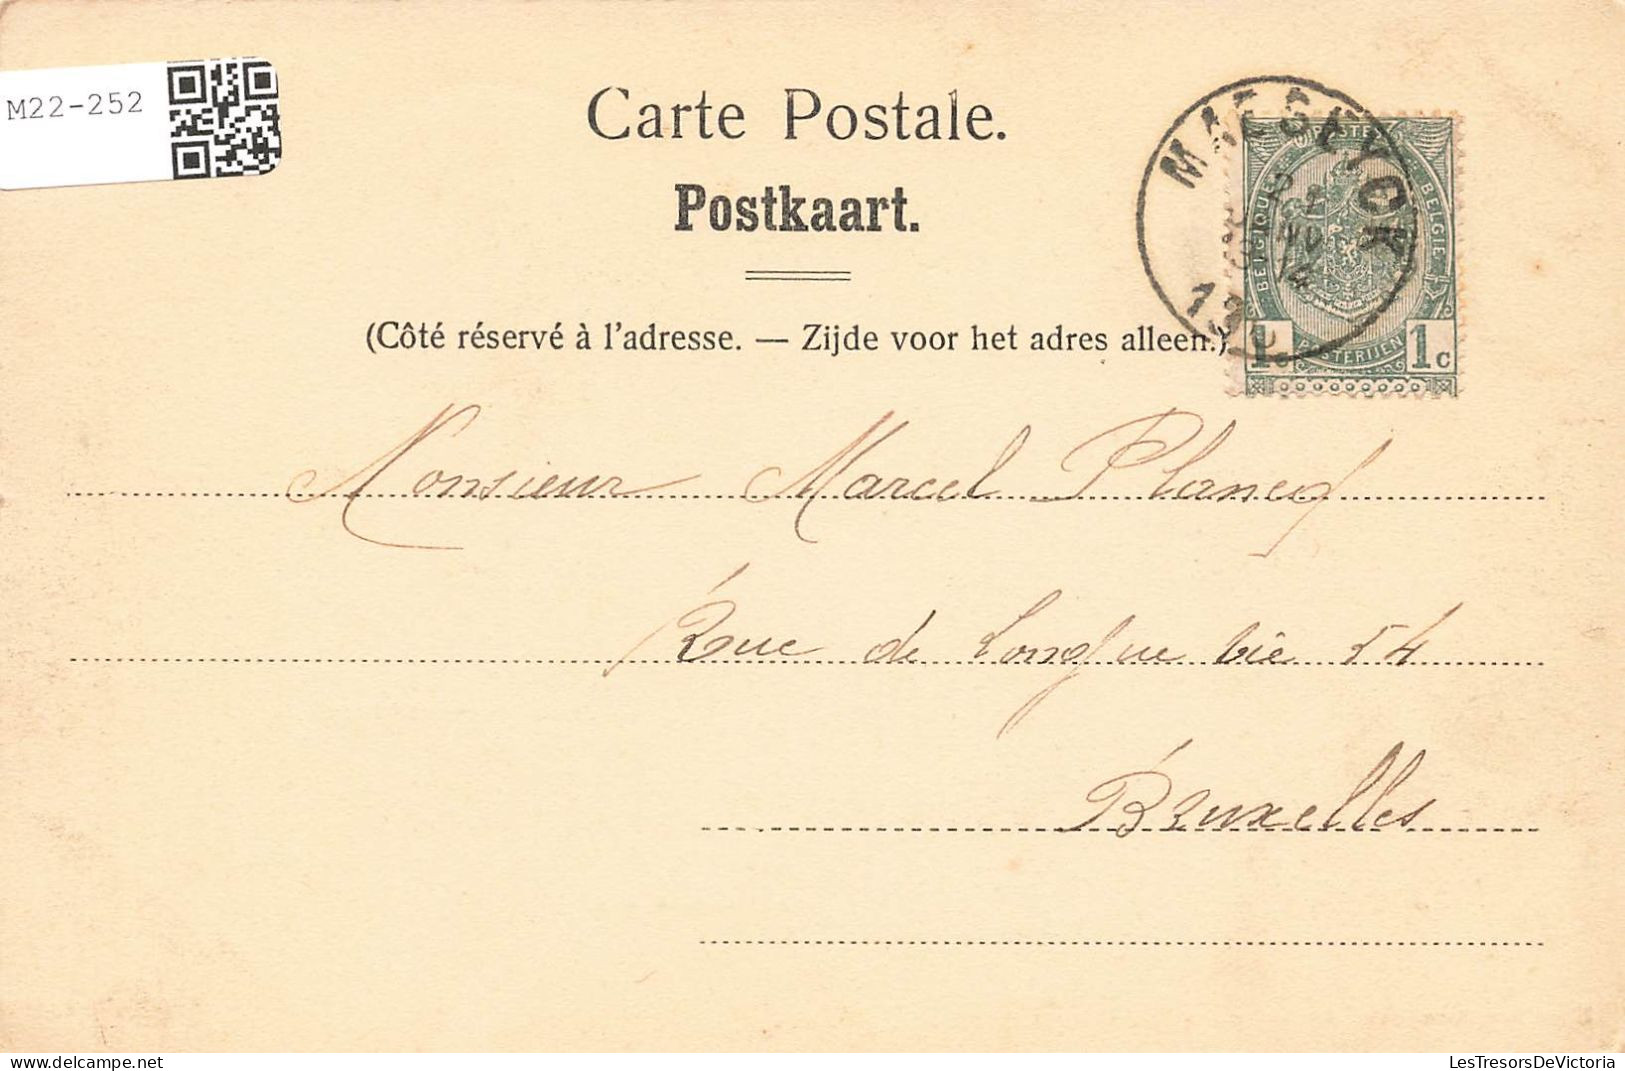 M22-252
Carte Postale.
Postkaart.
(Côté réservé à l'adresse. — Zijde voor het adres alleen.)
MAESEYCK
POSTERIJEN
BELGIQUE
BELGIË
1c 1c
Monsieur Marcel Plancq
Rue de Longue vie 54
Bruxelles
LesTresorsDeVictoria